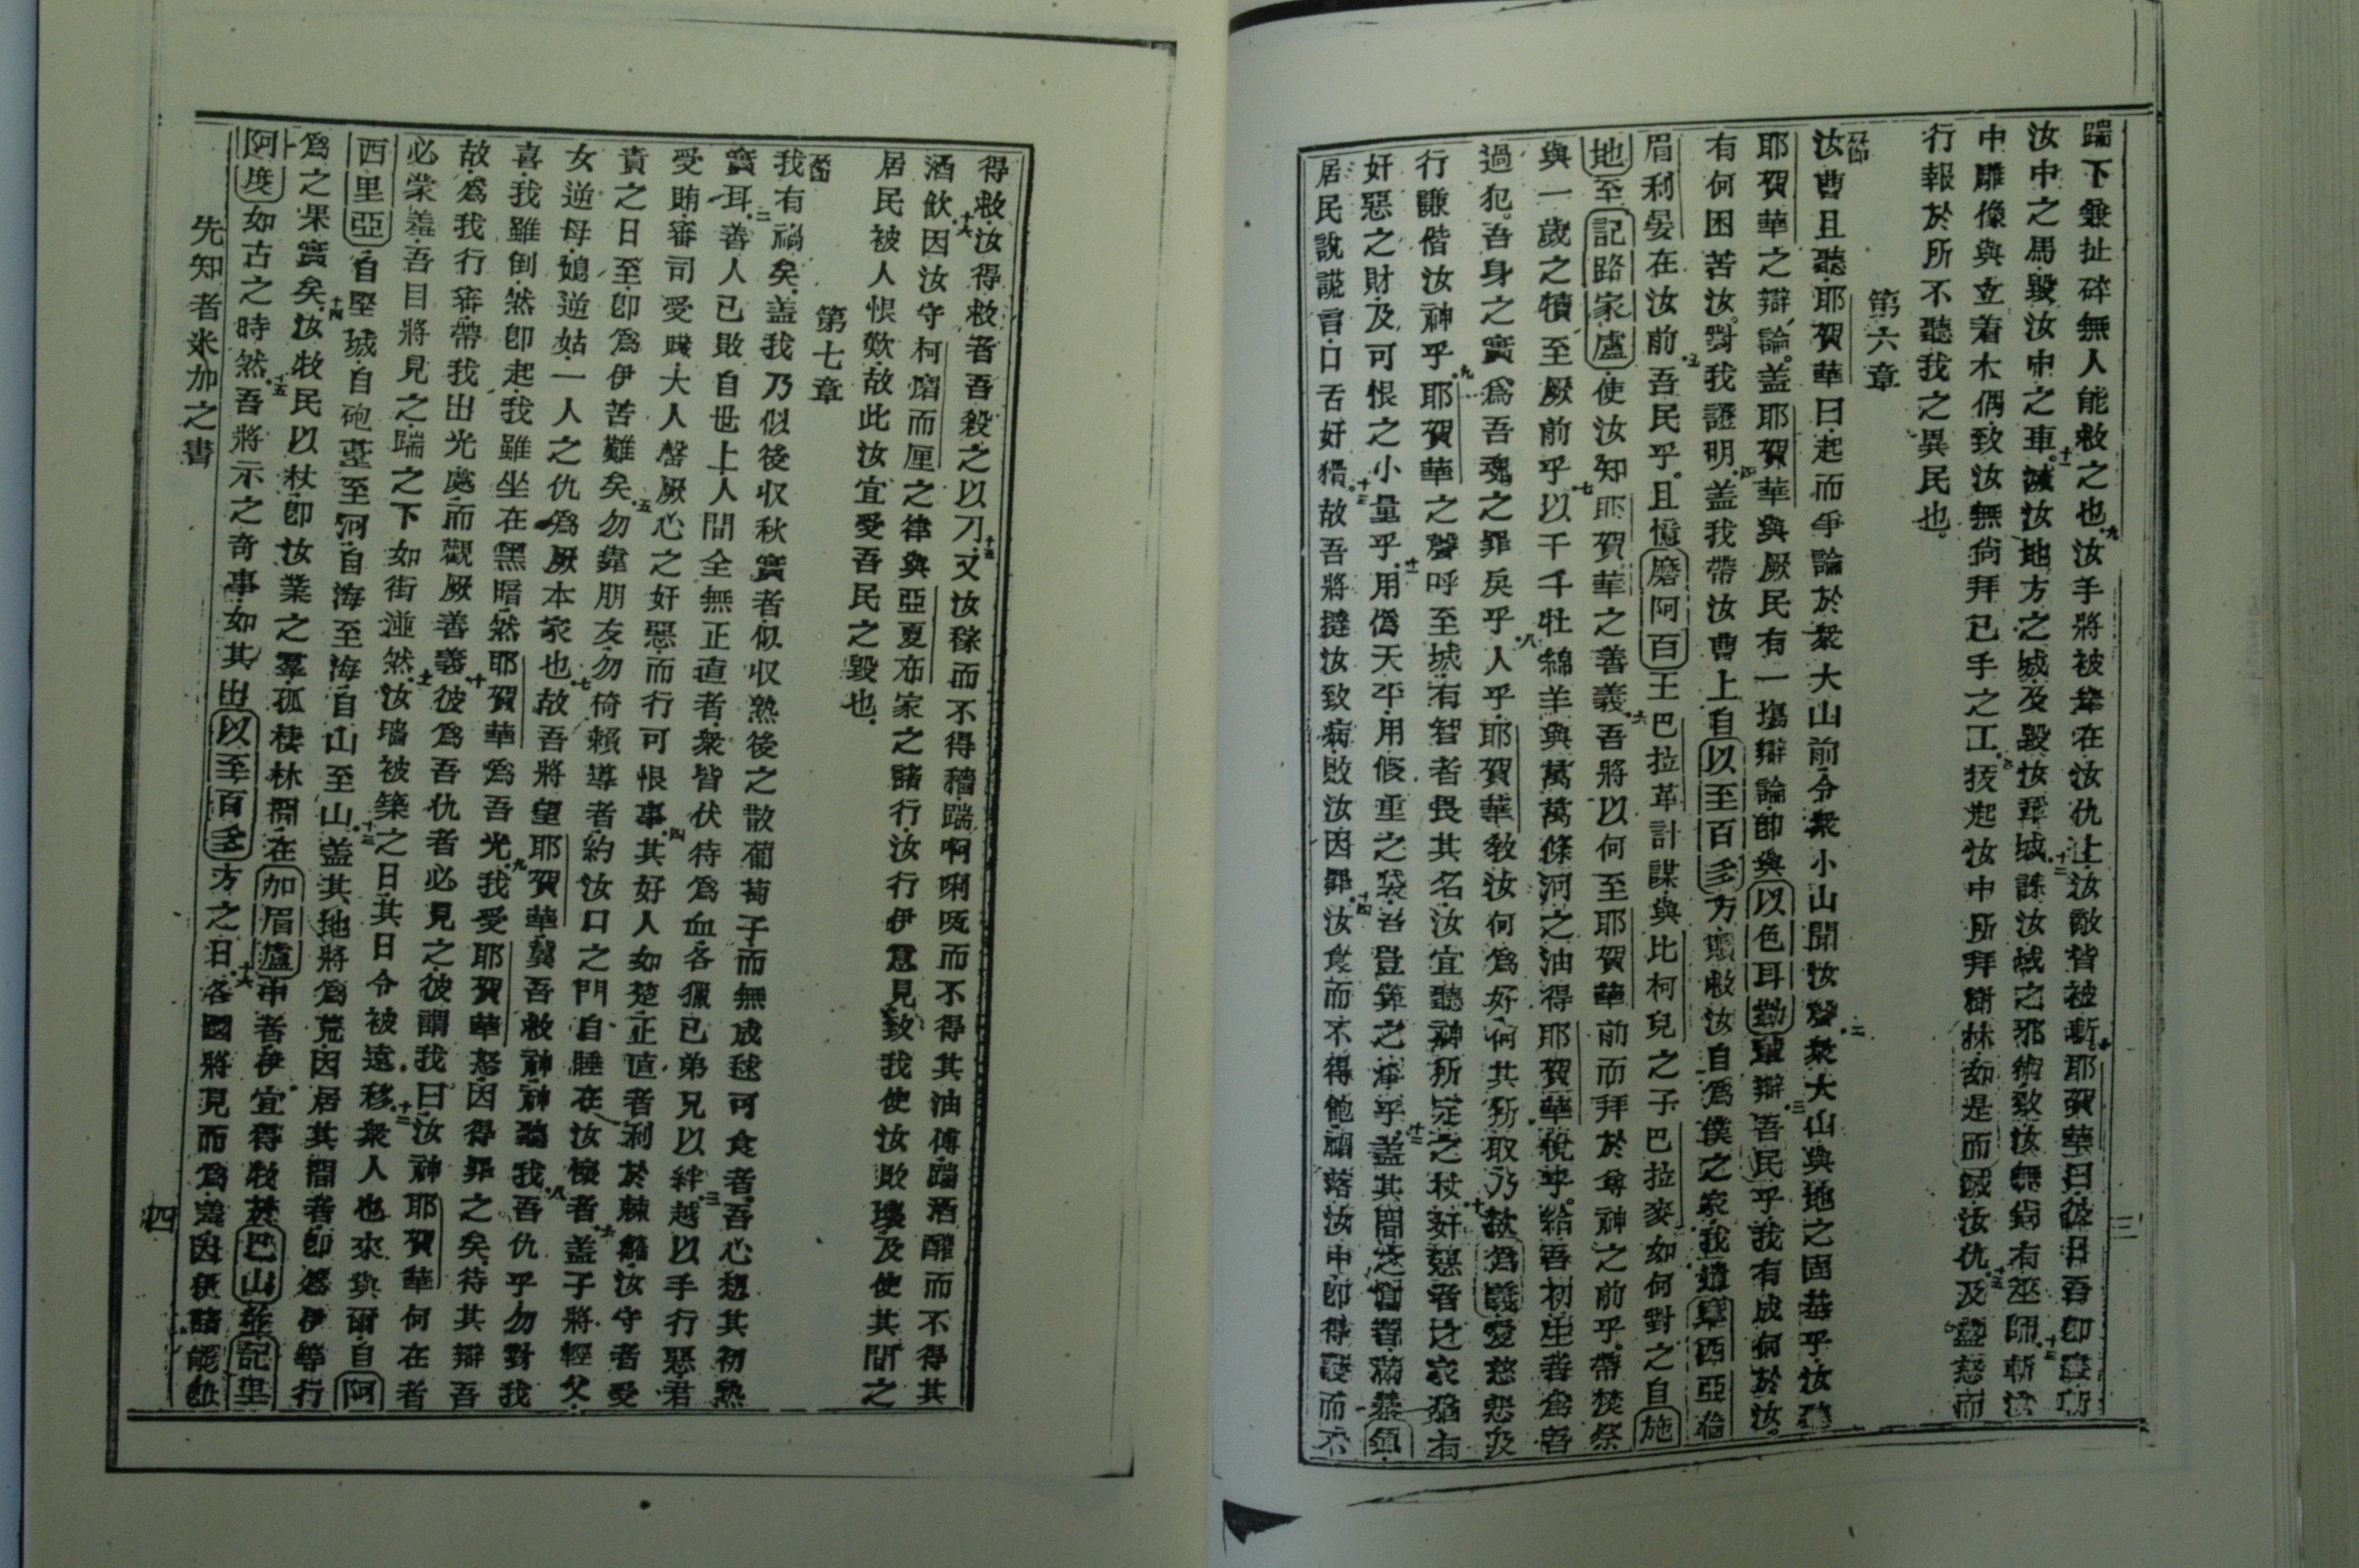 踹下兼扯碎無人能救之也九汝手將被舉在汝仇上汝敵皆被斬十耶賀華曰彼日吾卽盡斬
汝中之馬毀汝中之車十一滅汝地方之城及毀汝諸城十二誅汝城之邪術致汝無尙有巫師十三斬汝
中雕像與立着木偶致汝無尙拜己手之工十四拔起汝中所拜樹林如是而滅汝仇十五及盛怒而
行報於所不聽我之異民也
第六章
一節汝曹且聽耶賀華曰起而爭論於衆大山前令衆小山聞汝聲二衆大山與地之固基乎汝聽
耶賀華之辯論蓋耶賀華與厥民有一塲辯論卽與以色耳勒輩辯三吾民乎我有成何於汝
有何困苦汝對我證明四蓋我帶汝曹上自以至百多方贖救汝自爲僕之家我遣摩西亞倫
眉利晏在汝前五吾民乎且憶磨阿百王巴拉革計謀與比柯兒之子巴拉麥如何對之自施
地至記路家盧使汝知耶賀華之善義六吾將以何至耶賀華前而拜於尊神之前乎帶焚祭
與一歲之犢至厥前乎七以千千牡綿羊與萬萬條河之油得耶賀華悅乎給吾初生者爲吾
過犯吾身之實爲吾魂之罪戾乎八人乎耶賀華敎汝何爲好何其所取乃欲爲義愛慈悲及
行謙偕汝神乎九耶賀華之聲呼至城有智者畏其名汝宜聽神所定之杖十奸惡者之家猶有
奸惡之財及可恨之小量乎十一用僞天平用假重之袋吾豈算之淨乎十二蓋其間之富者滿暴氣
居民說謊言口舌奸猾十三故吾將撻汝致病敗汝因罪十四汝食而不得飽禍落汝中卽得護而不
三
得救汝得救者吾殺之以刀十五又汝稼而不得穡踹啊唎㕵而不得其油傅踹酒醡而不得其
酒飲十六因汝守柯𡺸而厘之律與亞夏布家之諸行汝行伊意見致我使汝敗壞及使其間之
居民被人恨歎故此汝宜受吾民之毀也
第七章
一節我有禍矣蓋我乃似後収秋實者似収熟後之散葡萄子而無成毬可食者吾心想其初熟
實耳二善人已敗自世上人間全無正直者衆皆伏待爲血各獵己弟兄以絆三越以手行惡君
受賄審司受賤大人罄厥心之奸惡而行可恨事四其好人如楚正直者利於棘籬汝守者受
責之日至卽爲伊苦難矣五勿靠朋友勿倚賴導者約汝口之門自睡在汝懷者六蓋子將輕父
女逆母媳逆姑一人之仇爲厥本家也七故吾將望耶賀華冀吾救神神聽我八吾仇乎勿對我
喜我雖倒然卽起我雖坐在黑暗然耶賀華爲吾光九我受耶賀華怒因得罪之矣待其辯吾
故爲我行審帶我出光處而觀厥善義十彼爲吾仇者必見之彼謂我曰汝神耶賀華何在者
必蒙羞吾目將見之踹之下如街湴然十一汝墻被築之日其日令被遠移十二衆人也來與爾自阿
西里亞自堅城自砲臺至河自海至海自山至山十三蓋其地將爲荒因居其間者卽怒伊等行
爲之果實矣十四汝牧民以杖卽汝業之羣孤棲林間在加眉盧中者伊宜得牧於巴山並記里
阿度如古之時然十五吾將示之奇事如其出以至百多方之日十六各國將見而爲羞因
先知者米加之書
四